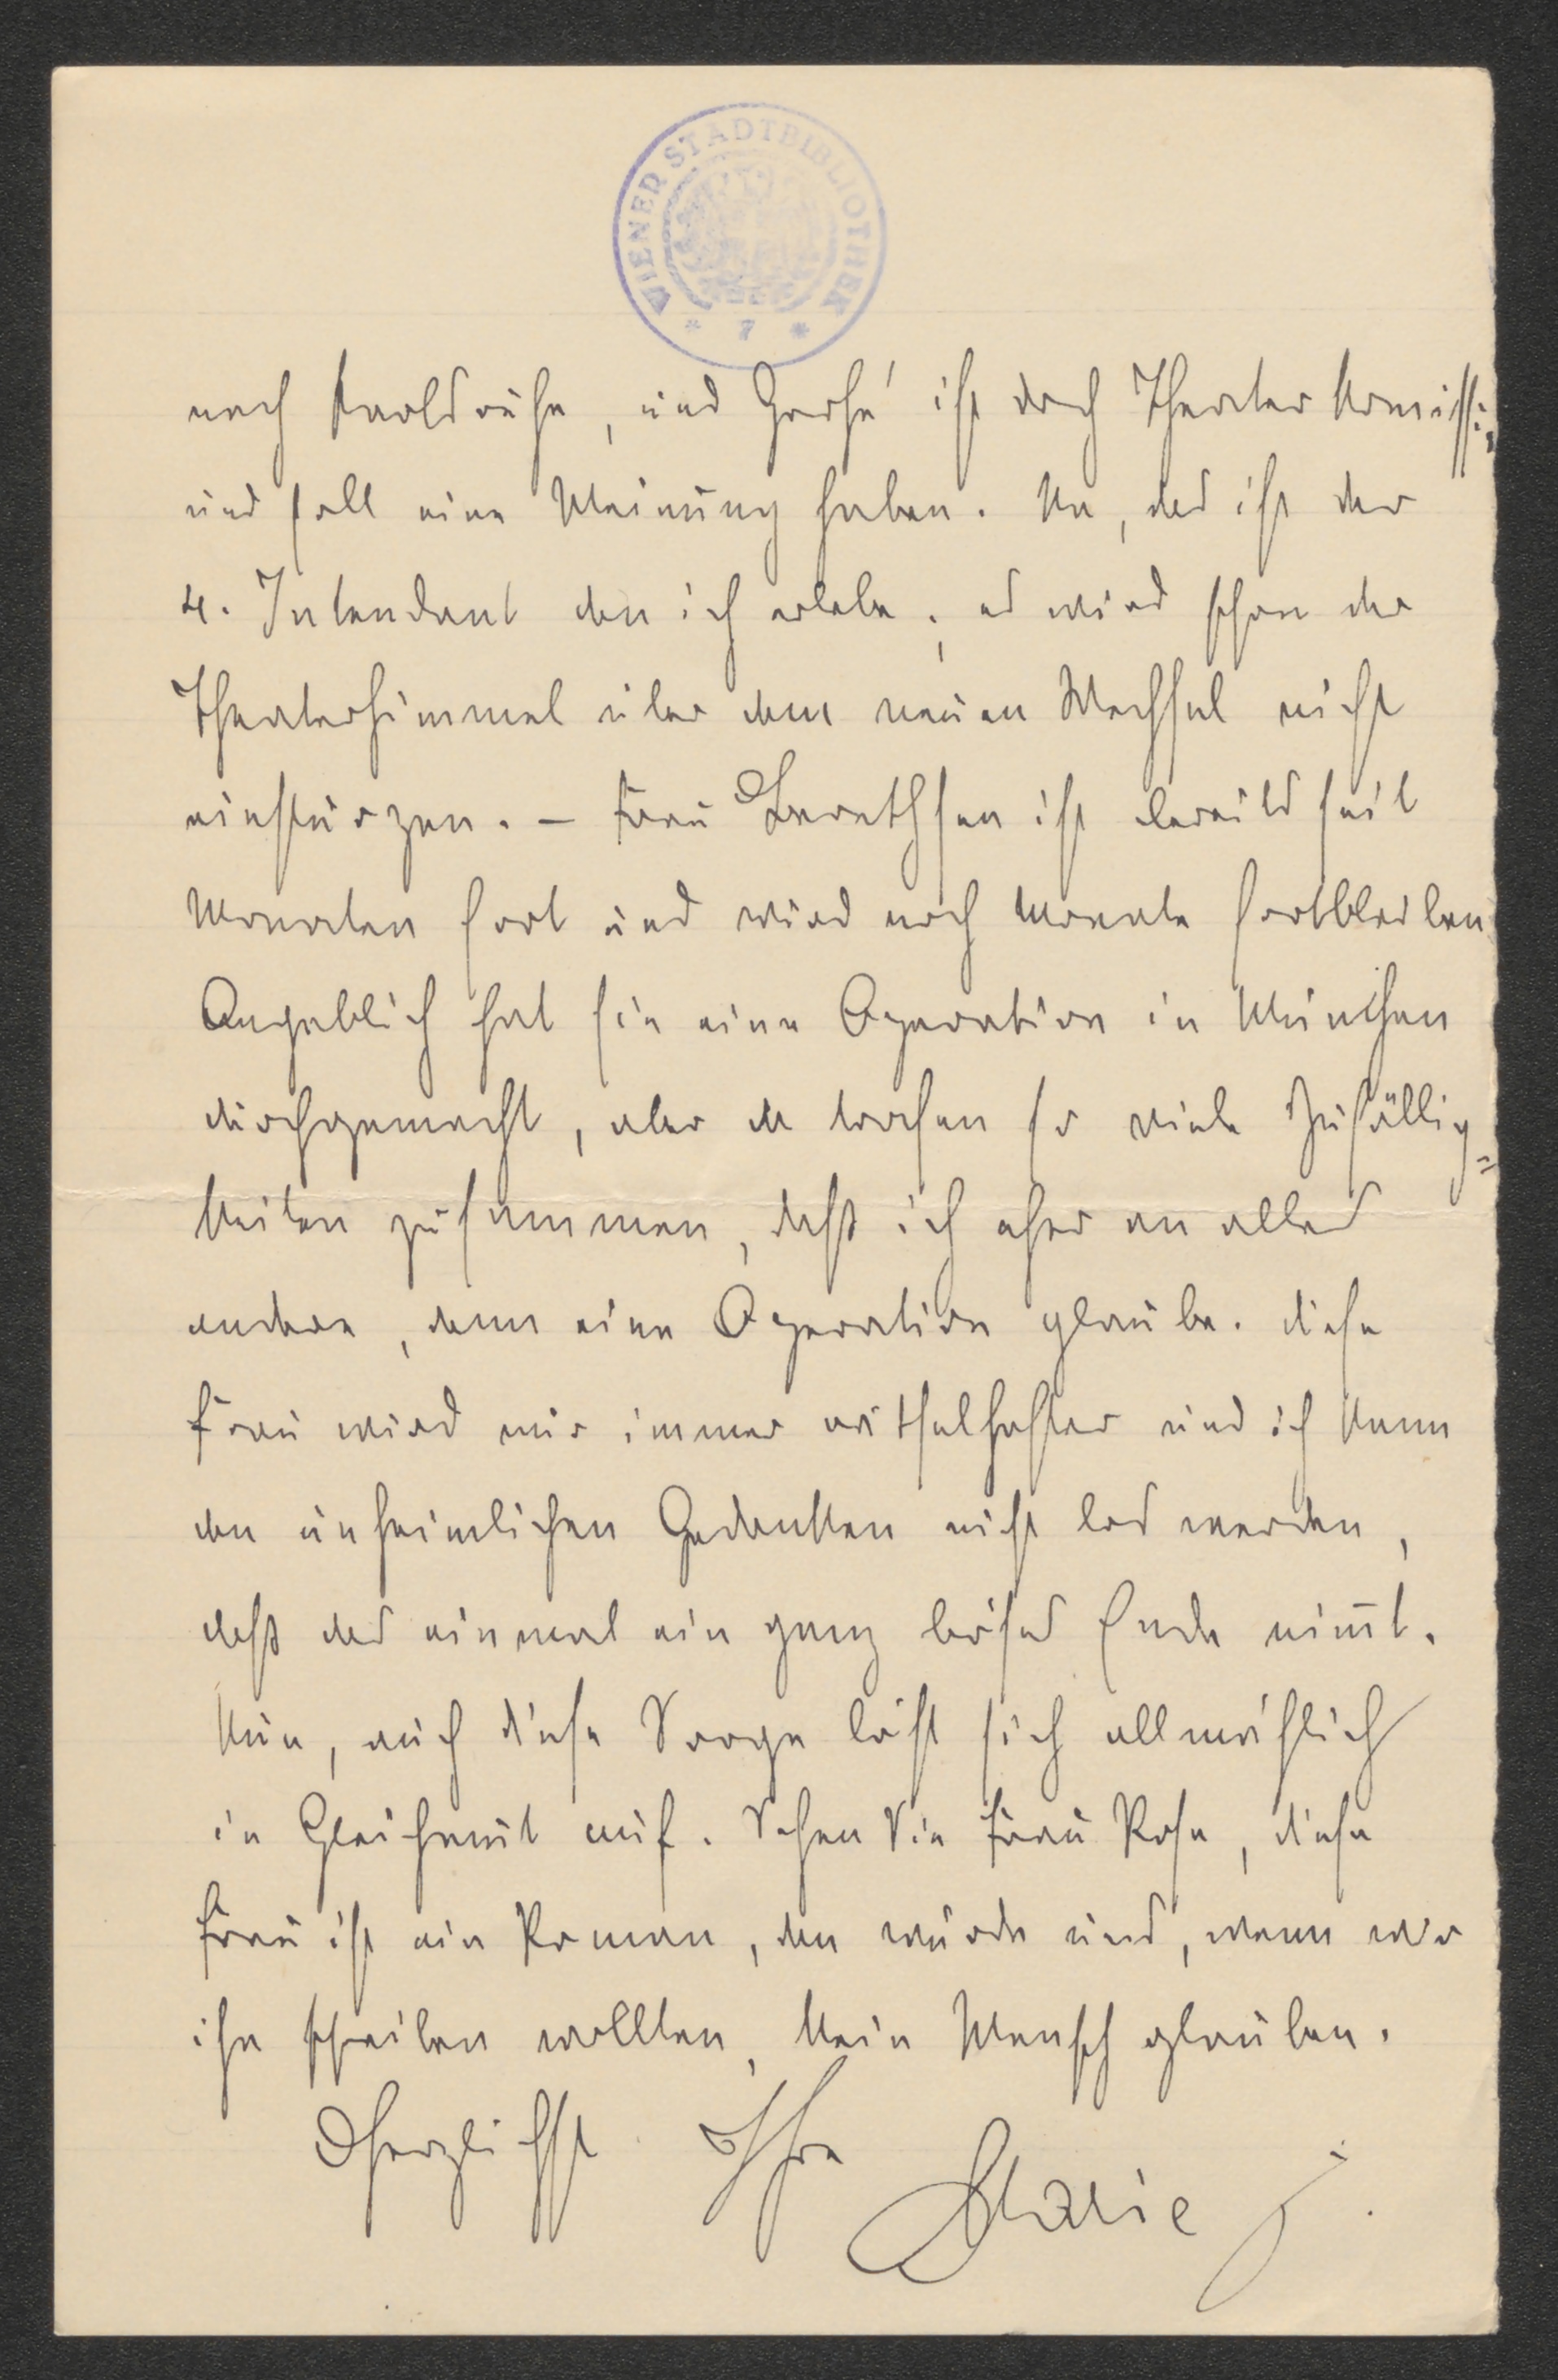 WIENER STADTBIBLIOTHEK
* 7 *
nach Karlsruhe, und ist doch Theater
und soll eine Meinung haben. Na, das ist der
4. Intendant den ich erlebe; es wird schon der
Theaterhimmel über dem neuen Wechsel nicht
einstürzen. – Frau ist bereits seit
Monaten fort und wird noch Monate fortbleiben
Angeblich hat sie eine Operation in München
durchgemacht, aber da trafen so viele Zufällig=
keiten zusammen, daß ich eher an alles
andere, denn eine Operation glaube. Diese
Frau wird mir immer rätselhafter und ich kann
den unheimlichen Gedanken nicht los werden,
daß das einmal ein ganz böses Ende nimt.
Nun, auch diese Sorge löst sich allmählich
in Gleichmut auf. Sehen Sie Frau Rosa, diese
Frau ist ein Roman, den würde uns, wenn wir
ihn schreiben wollten, kein Mensch glauben.
Herzlichst Ihre
Marie J.